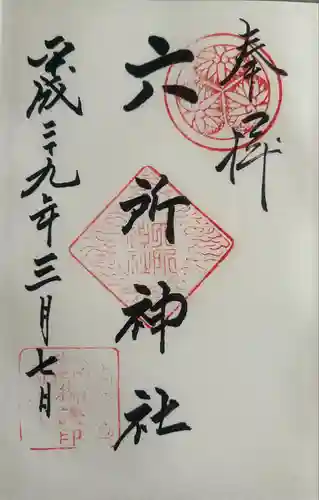 奉拝
六所神社
平成二十九年三月七日